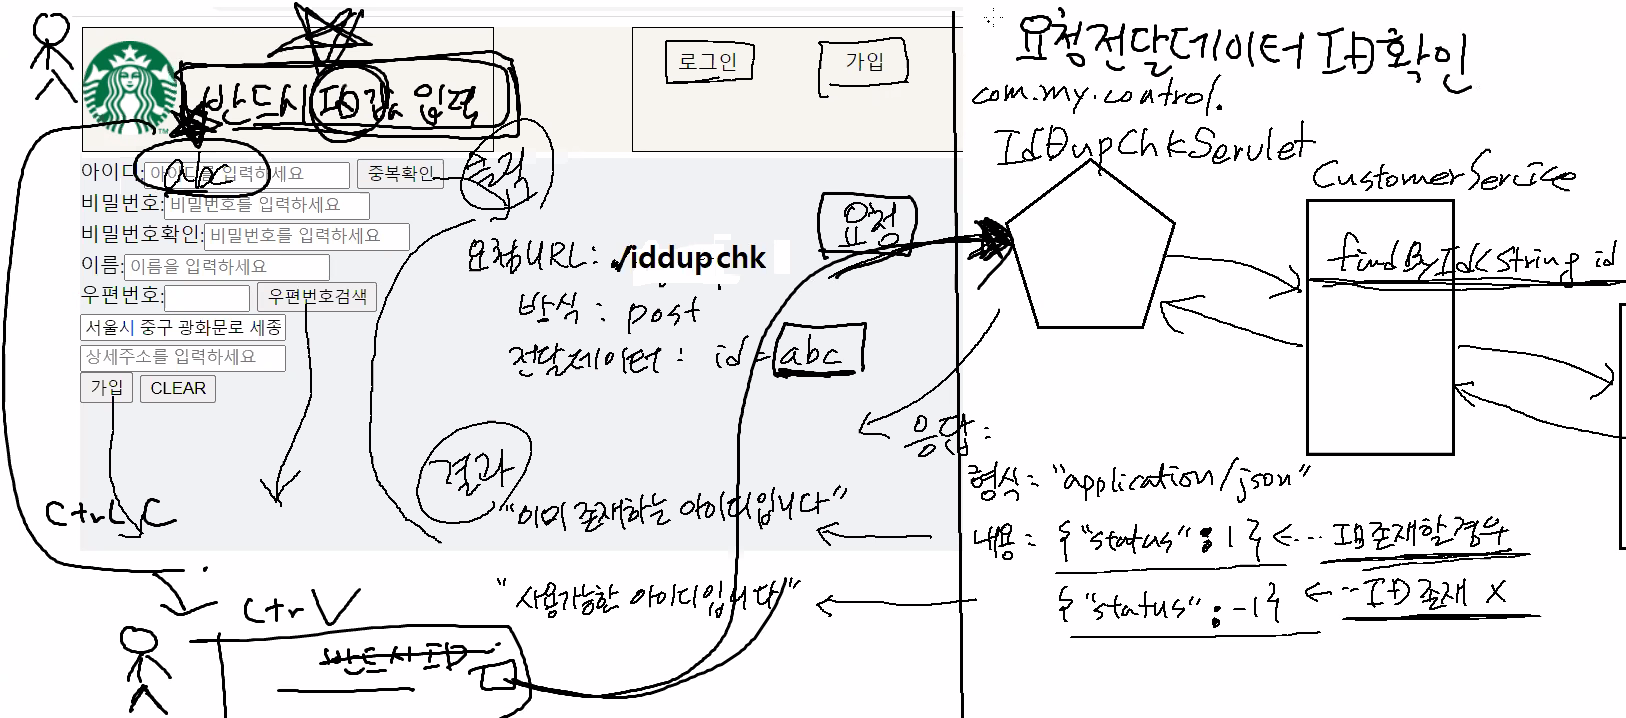 로그인
가입
반드시 ID값 입력
아이디:
abc
중복확인
클릭
비밀번호:비밀번호를 입력하세요
비밀번호확인:비밀번호를 입력하세요
이름:이름을 입력하세요
우편번호:
우편번호검색
서울시 중구 광화문로 세종
상세주소를 입력하세요
가입
CLEAR
요청URL: /iddupchk
방식 : post
전달데이터 : id = abc
요청
결과
"이미 존재하는 아이디입니다"
"사용가능한 아이디입니다"
Ctrl C
Ctr V
반드시 ID
요청전달데이터 ID확인
com.my.control.
IdDupChkServlet
CustomerService
findById(String id
응답 :
형식 = "application/json"
내용 = {"status" : 1} <--- ID존재할경우
{"status" : -1} <--- ID존재 X